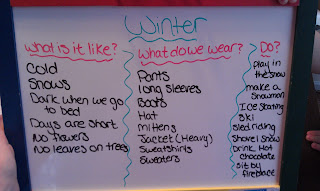 Winter
what is it like?
Cold
Snows
Dark when we go
to bed
Days are short
No flowers
No leaves on trees
What do we wear?
Pants
long sleeves
Boots
Hat
Mittens
Jacket (Heavy)
Sweatshirts
Sweaters
Do?
play in
the snow
make a
Snowman
ICE skating
Ski
sled riding
shovel snow
Drink Hot
chocolate
sit by
fireplace